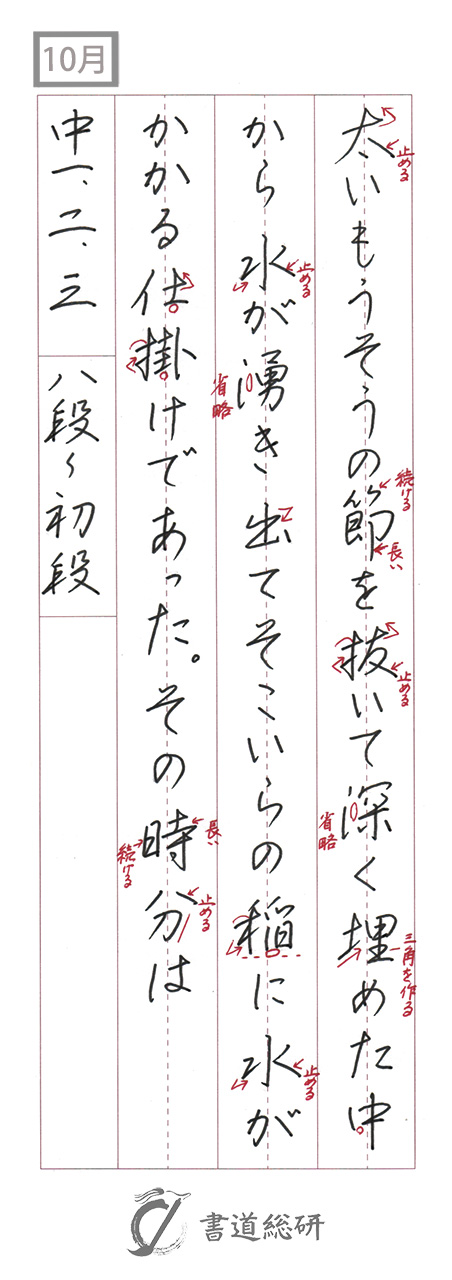 10月
太いもうそうの節を抜いて深く埋めた中
から水が湧き出てそこいらの稲に水が
かかる仕掛けであった。その時分は
中一、二、三
八段〜初段
止める
続ける
長い
止める
省略
三角を作る
止める
省略
止める
長い
続ける
止める
書道総研